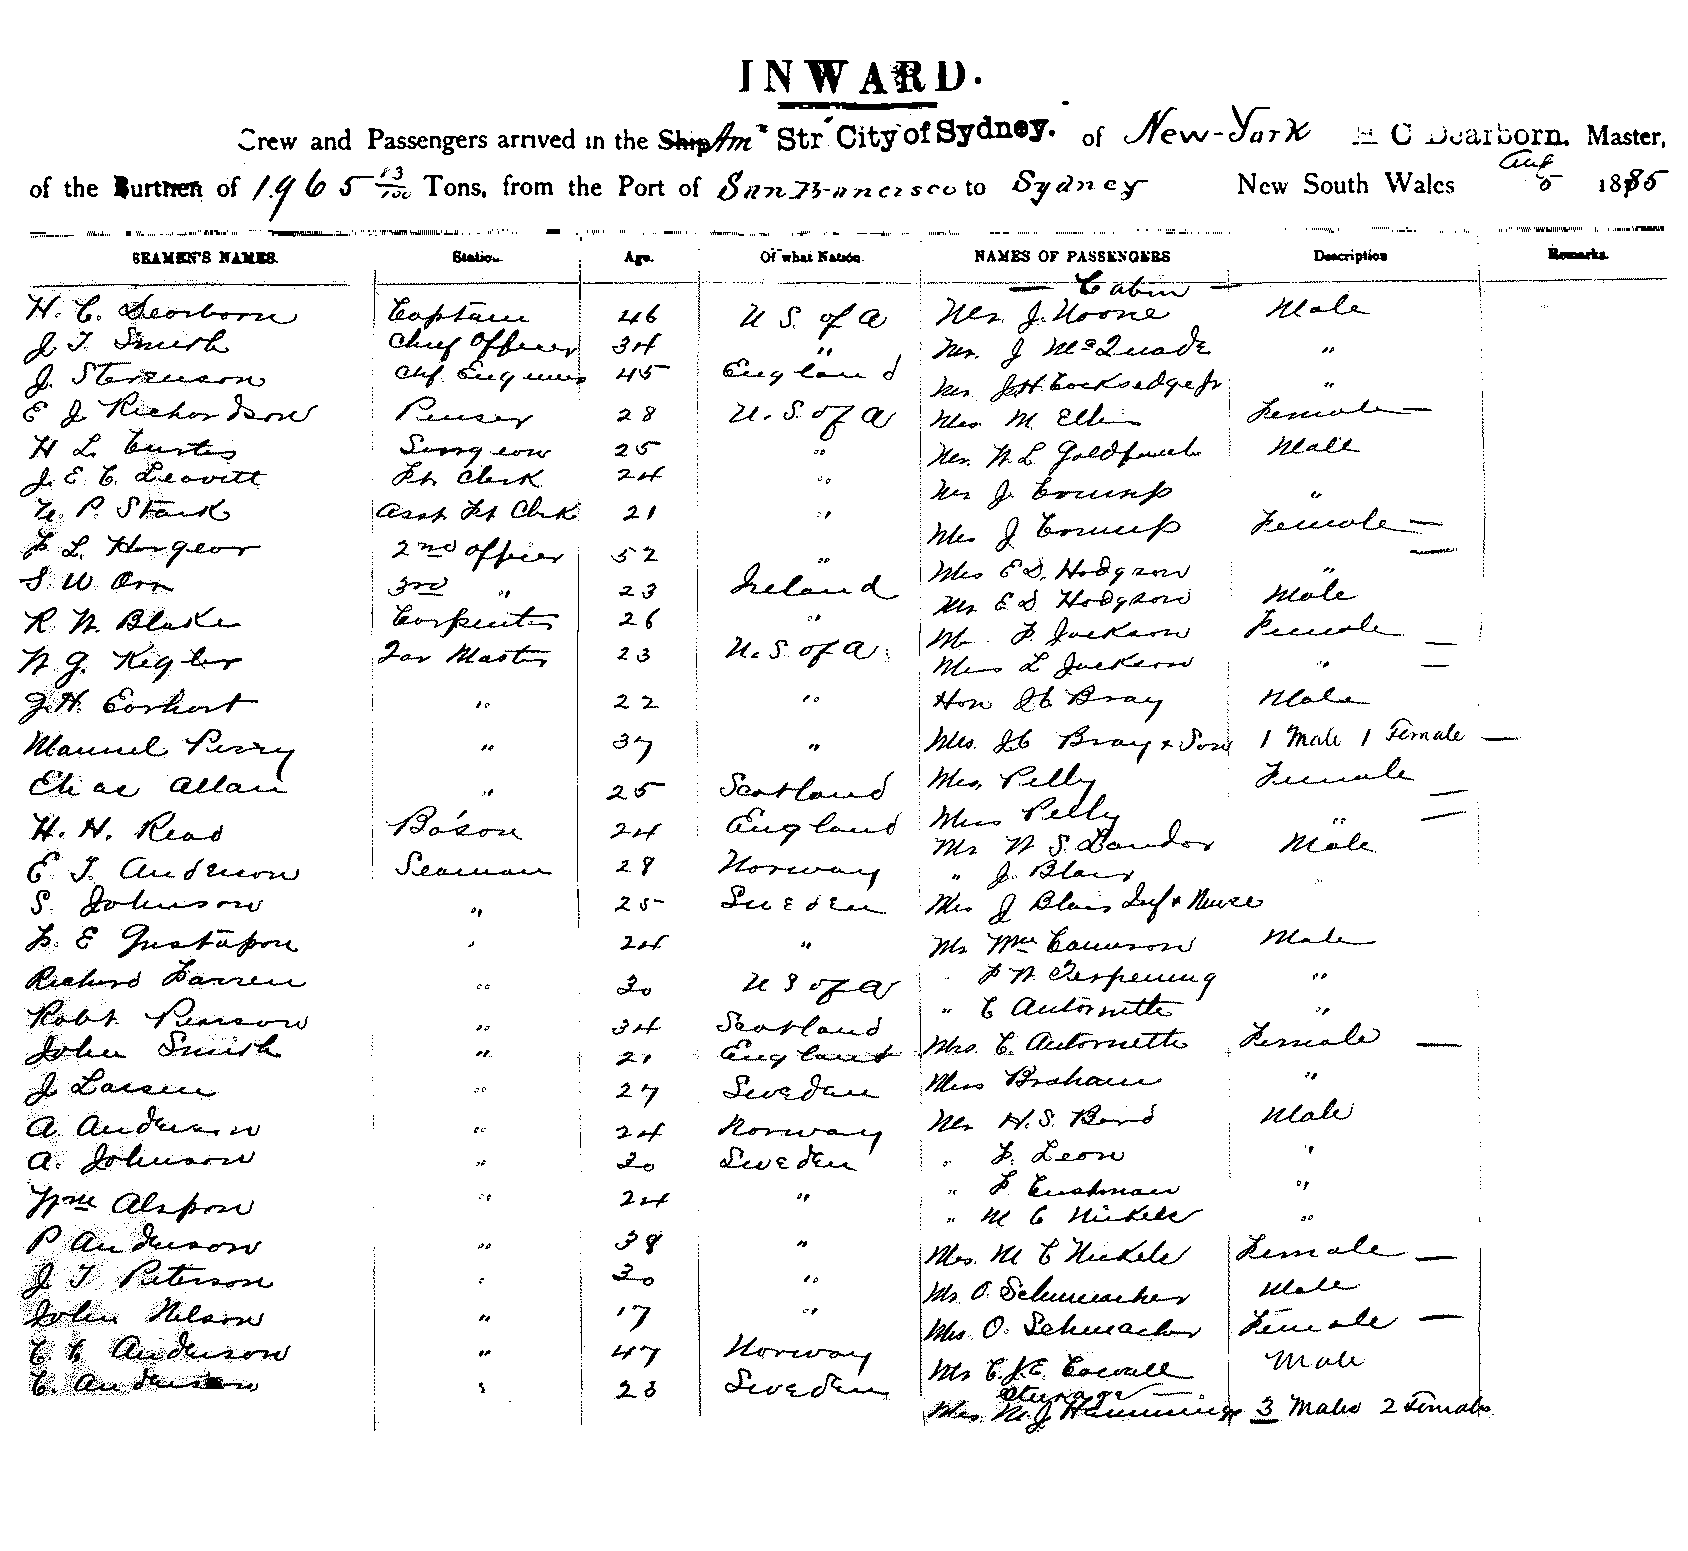 INWARD.
Crew and Passengers arrived in the Ship Am Str City of Sydney. of New-York H C Dearborn. Master,
of the Burthen of 1965 13/100 Tons, from the Port of San Francisco to Sydney New South Wales Aug 5 1885
SEAMEN'S NAMES. Station. Age. Of what Nation. NAMES OF PASSENGERS Description Remarks.
— Cabin —
H. C. Dearborn Captain 46 U S. of A Mr. J. Moore Male
J T. Smith Chief Officer 34 " Mr. J McQuade "
J. Stevenson Chf. Engineer 45 England Mr J.H. Cocksedge Jr "
E J Richardson Purser 28 U. S. of A Mrs M. Ellis Female —
H L. Curtis Surgeon 25 " Mr. W. L Goldfinch Male
J. E. C. Leavitt Frt Clerk 24 " Mr J. Crump "
P. Stark Asst Frt Clerk 21 " Mrs J Crump Female —
F L. 2nd Officer 52 " Mrs E D. Hodgson " —
S. W Orr 3rd " 23 Ireland Mr E D Hodgson Male
R. W. Blake Carpenter 26 " F Jackson Female —
W. J. Kegler Tar Master 23 U. S of A. Miss L Jackson " —
J. H. Earhart " 22 " Hon J C Bray Male
Manuel Perry " 37 " Mrs. J C Bray & Son 1 Male 1 Female —
Elias Allan " 25 Scotland Mrs. Pelly Female —
H. H. Read Bo'son 24 England Miss Pelly " —
E. T. Anderson Seaman 28 Norway Mr W S. Landor Male
S. Johnson " 25 Sweden " J. Blair
F. E Gustafson " 24 " Mrs J Blair Inf & Nurse
Richard Farren " 30 U S of A Mr Wm Cameron Male
Robt. Pearson " 34 Scotland " F W Terpening "
John Smith " 21 England " C Antoinette "
J Larsen " 27 Sweden Mrs. C. Antoinette Female —
A. Anderson " 24 Norway Miss Braham "
A. Johnson " 30 Sweden Mr H. S. Bend Male
Wm Alspon " 24 " " F. Leon "
P Anderson " 38 " " F Cushman "
J T Peterson " 30 " " M C Nickels "
John Nelson " 17 " Mrs. M C Nickels Female —
C C Anderson " 47 Norway Mr O. Schumacher Male
C. Anderson " 23 Sweden Mrs O. Schumacher Female —
Mr C. J. E. Male
Sterage —
Mrs. M. J Hemmings 3 Males 2 Females